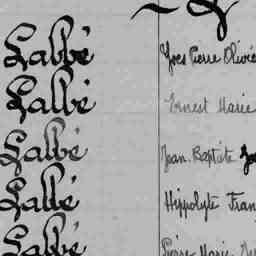 Labbé Yves Pierre Olivie
Labbé Ernest Marie
Labbé Jean Baptiste
Labbé Hippolyte Fran
Labbé Pierre Marie